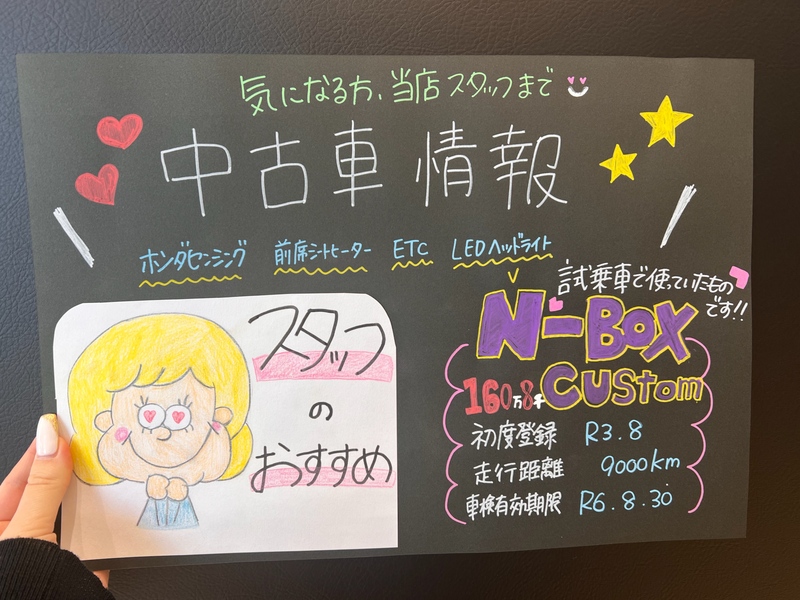 気になる方、当店スタッフまで
中古車情報
ホンダセンシング 前席シートヒーター ETC LEDヘッドライト
試乗車で使っていたもの
です!!
N-BOX
CUSTOM
160万8千
初度登録 R3.8
走行距離 9000km
車検有効期限 R6.8.30
スタッフ
の
おすすめ